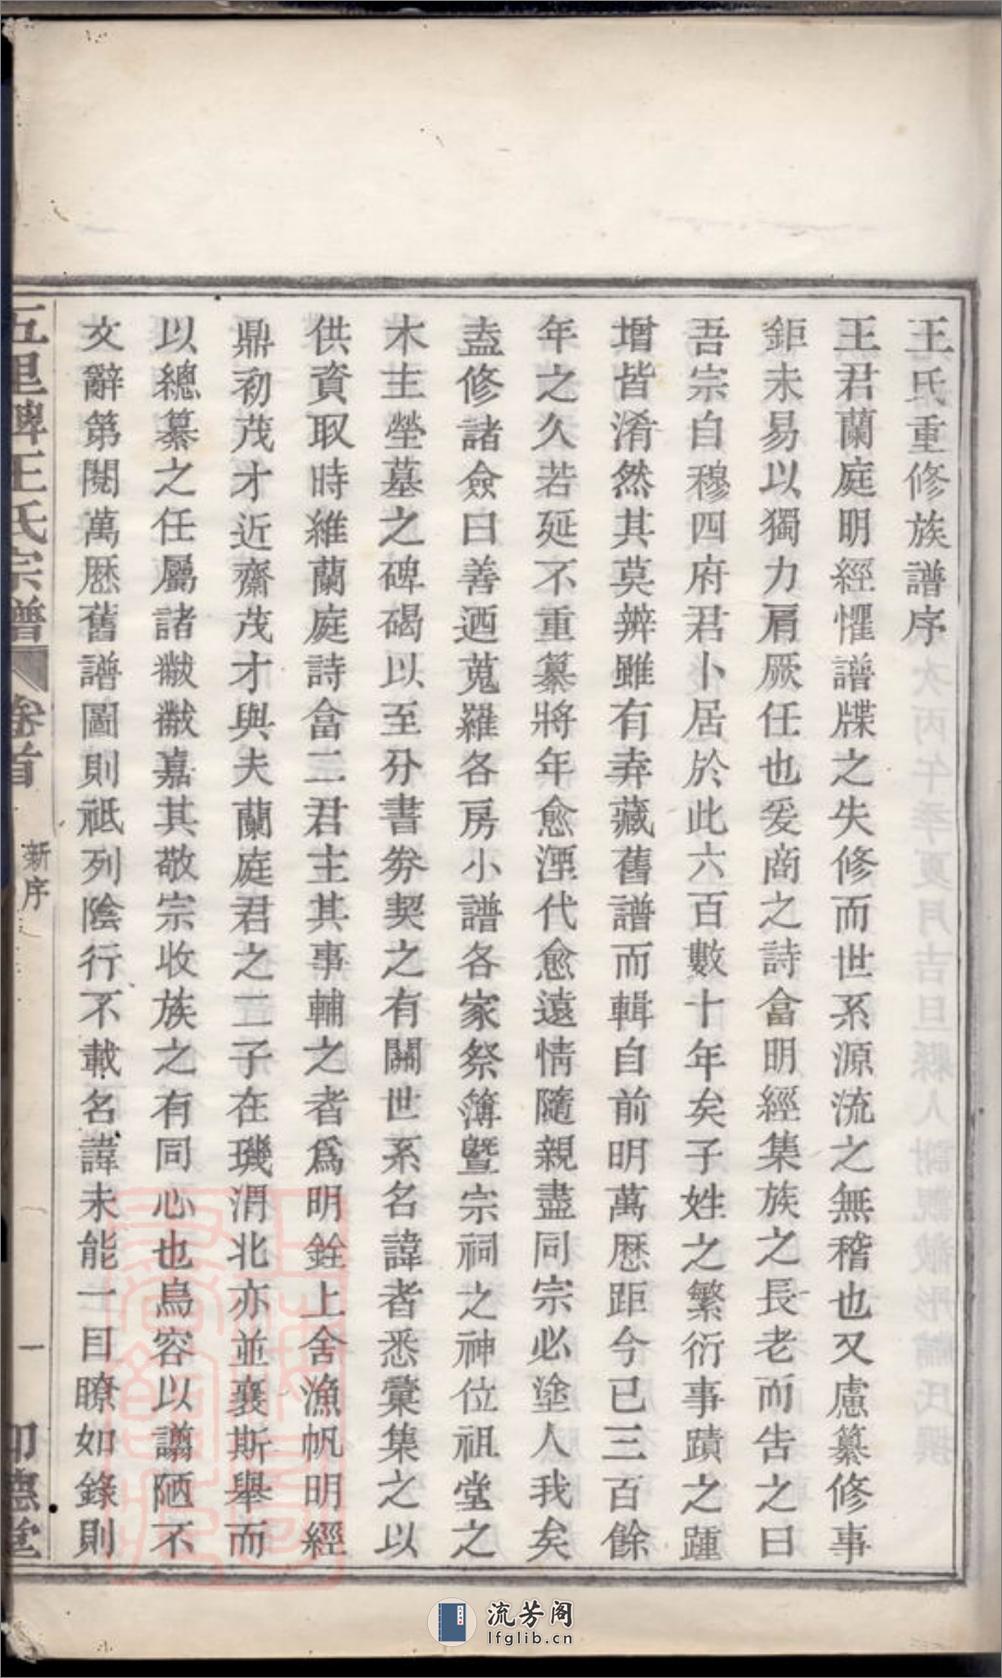 王氏重修族譜序
王君蘭庭明經懼譜牒之失修而世系源流之無稽也又慮纂修事
鉅未易以獨力肩厥任也爰商之詩畬明經集族之長老而告之曰
吾宗自穆四府君卜居於此六百數十年矣子姓之繁衍事蹟之踵
增皆淆然其莫辨雖有弆藏舊譜而輯自前明萬厯距今已三百餘
年之久若延不重纂將年愈湮代愈遠情隨親盡同宗必塗人我矣
盍修諸僉曰善迺蒐羅各房小譜各家祭簿暨宗祠之神位祖堂之
木主塋墓之碑碣以至分書券契之有關世系名諱者悉彙集之以
供資取時維蘭庭詩畬二君主其事輔之者爲明銓上舍漁帆明經
鼎初茂才近齋茂才與夫蘭庭君之二子在璣渭北亦並襄斯舉而
以總纂之任屬諸黻黻嘉其敬宗收族之有同心也烏容以譾陋不
文辭第閱萬厯舊譜圖則祗列陰行不載名諱未能一目瞭如錄則
五里牌王氏宗譜 卷首 新序 一 卬德堂
流芳阁
lfglib.cn